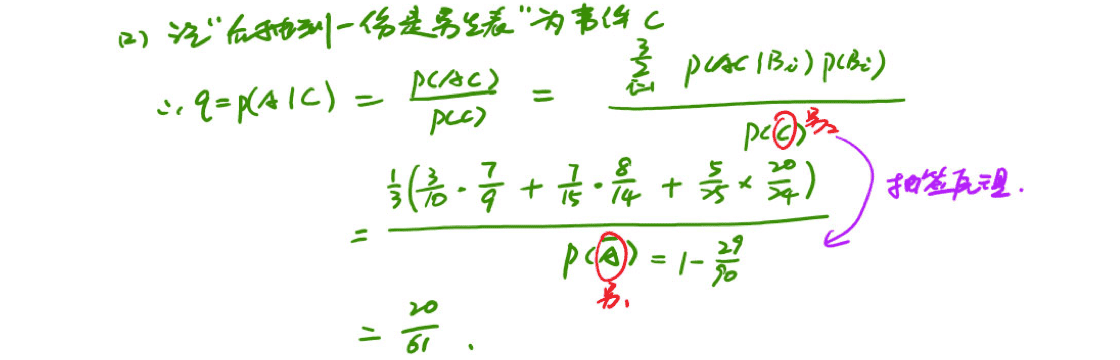 (2) 记“后抽到一份是男生表”为事件C
∴ q=P(A|C) = P(AC)/P(C) = ∑_{i=1}^{3} P(AC|Bi)P(Bi) / P(C) 男2
= 1/3(3/10 · 7/9 + 7/15 · 8/14 + 5/25 × 20/24) / P(A̅) = 1 - 29/90 抽签原理.
男1
= 20/61 .